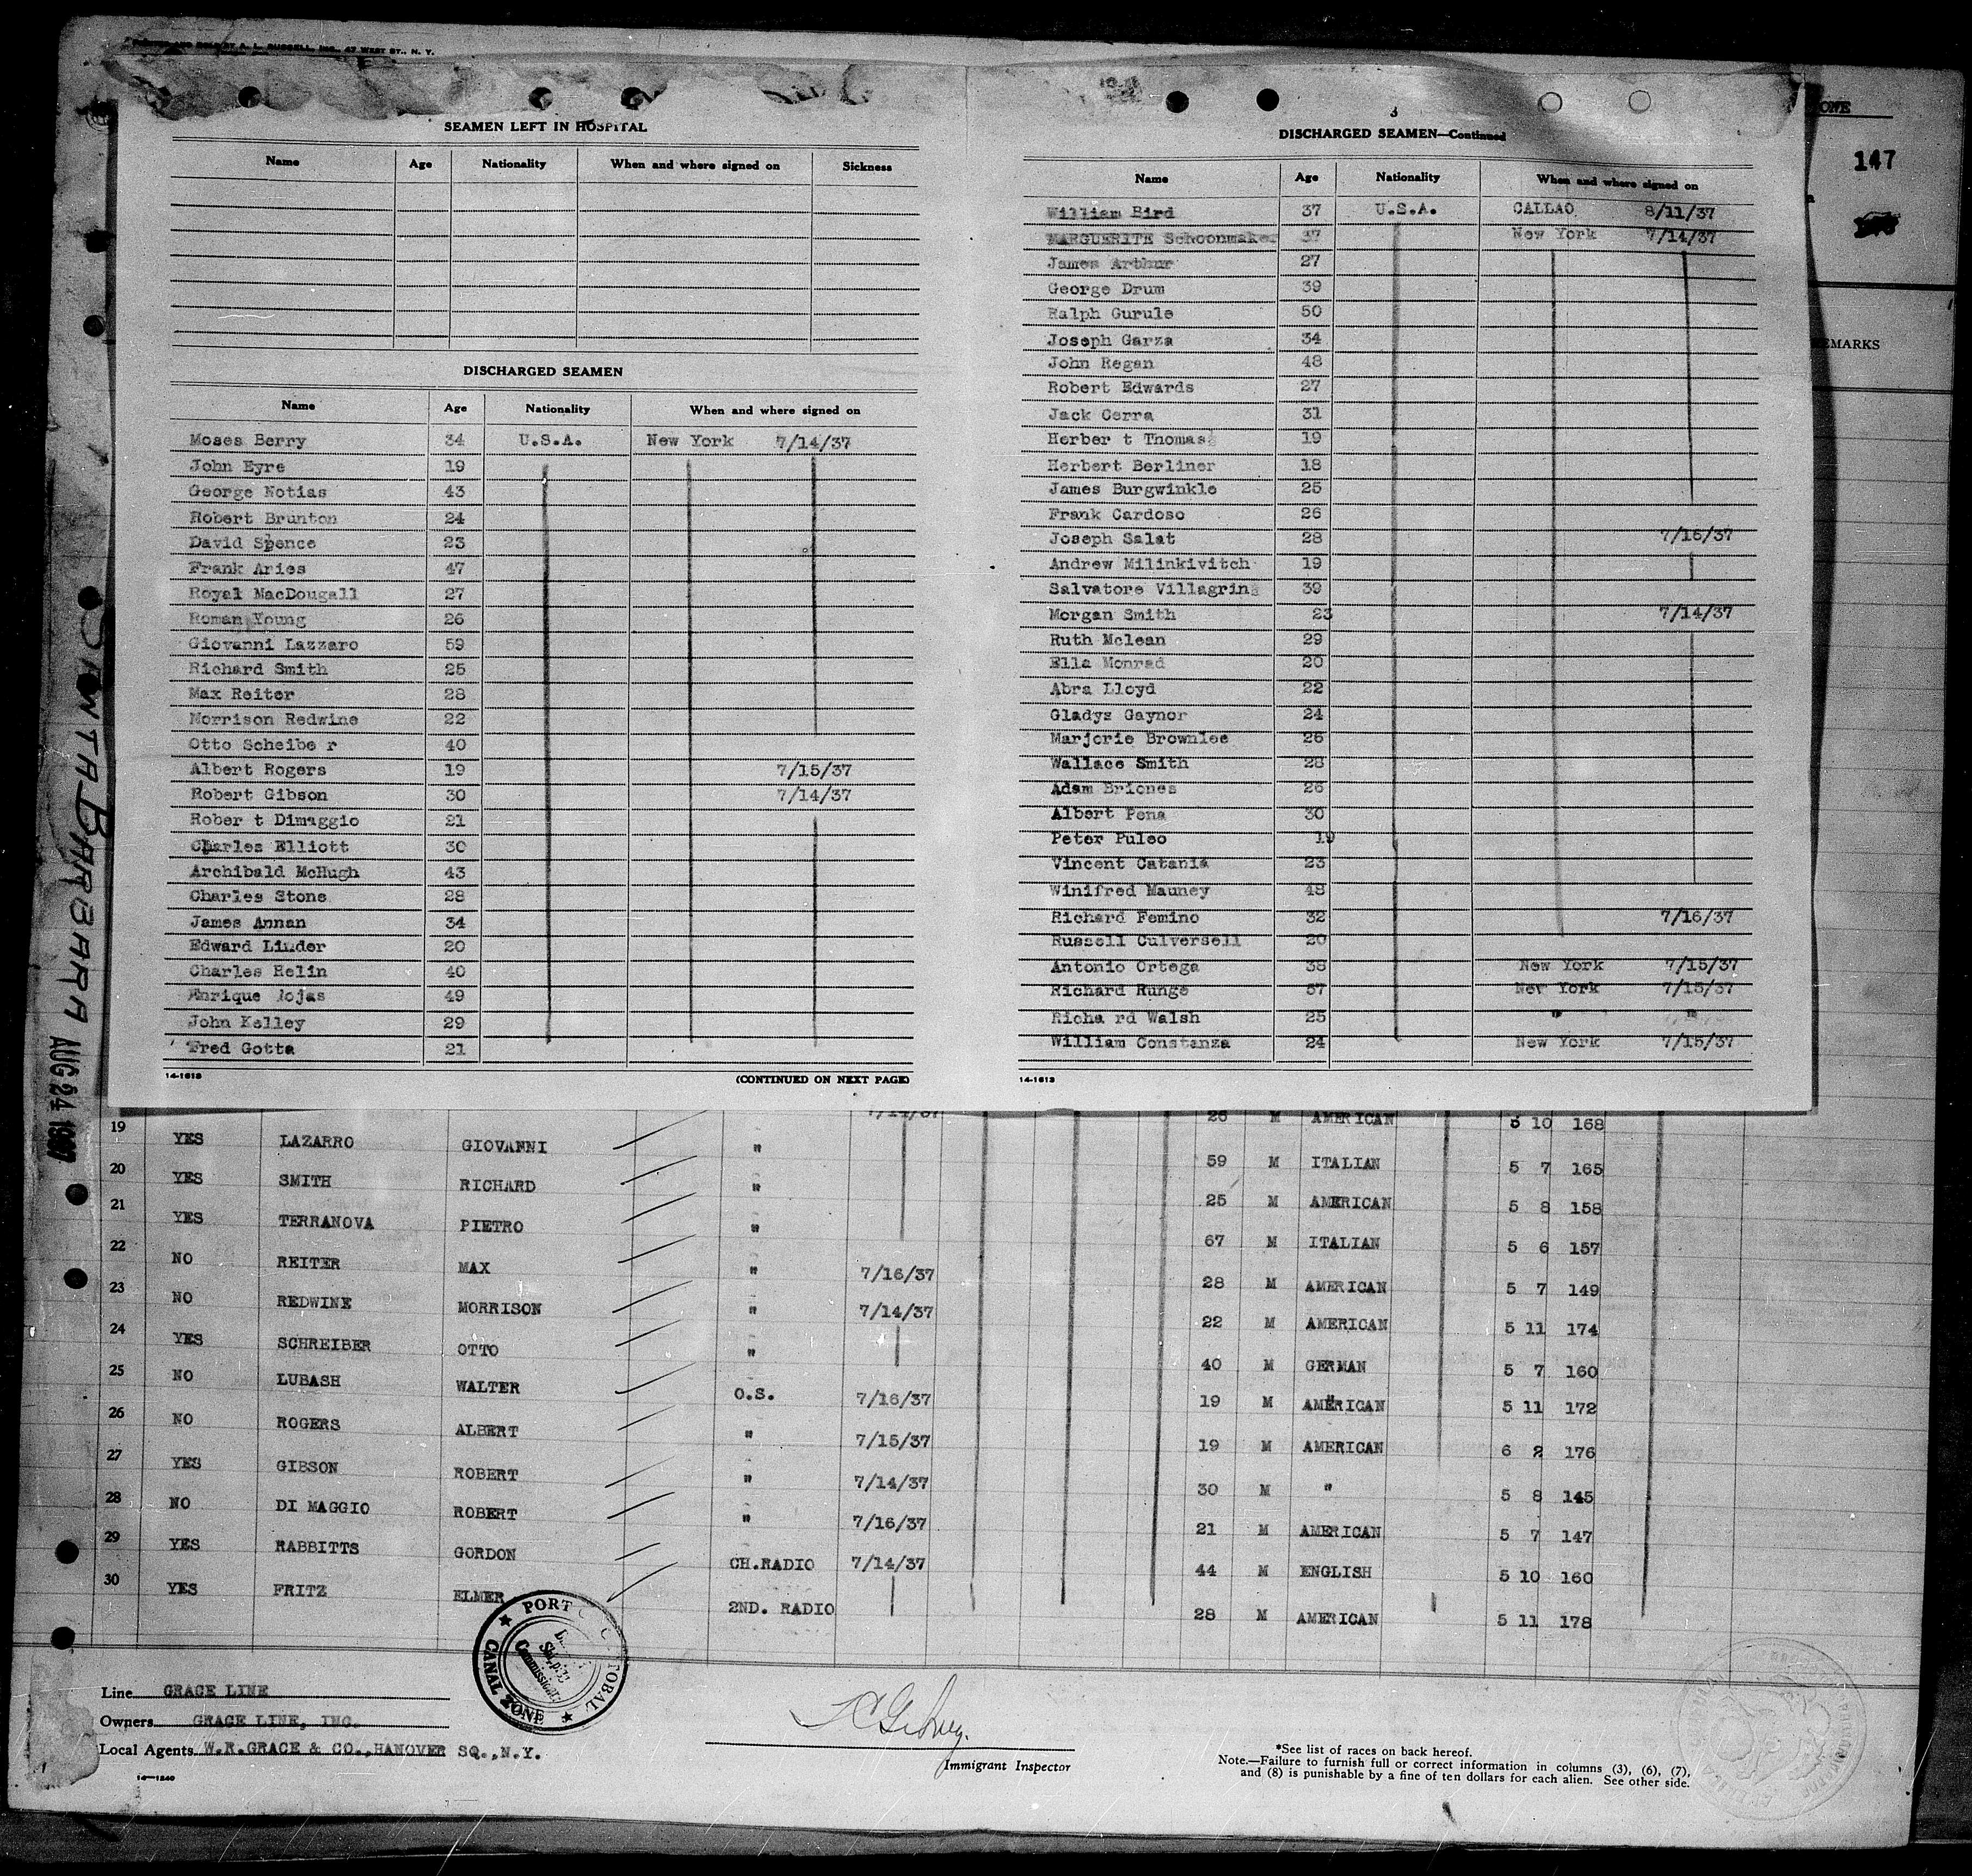 A. L. RUSSELL, INC., 47 WEST ST., N. Y.
SEAMEN LEFT IN HOSPITAL
Name Age Nationality When and where signed on Sickness
DISCHARGED SEAMEN
Name Age Nationality When and where signed on
Moses Berry 34 U.S.A. New York 7/14/37
John Eyre 19
George Notias 43
Robert Brunton 24
David Spence 23
Frank Aries 47
Royal MacDougall 27
Roman Young 26
Giovanni Lazzaro 59
Richard Smith 25
Max Reiter 28
Morrison Redwine 22
Otto Scheibe r 40
Albert Rogers 19 7/15/37
Robert Gibson 30 7/14/37
Rober t Dimaggio 21
Charles Elliott 30
Archibald McHugh 43
Charles Stone 28
James Annan 34
Edward Linder 20
Charles Relin 40
Enrique Rojas 49
John Kelley 29
Fred Gotta 21
14-1613 (CONTINUED ON NEXT PAGE)
3
DISCHARGED SEAMEN—Continued
Name Age Nationality When and where signed on
William Bird 37 U.S.A. CALLAO 8/11/37
MARGUERITE Schoonmaker 37 New York 7/14/37
James Arthur 27
George Drum 39
Ralph Gurule 50
Joseph Garza 34
John Regan 48
Robert Edwards 27
Jack Cerra 31
Herber t Thomas 19
Herbert Berliner 18
James Burgwinkle 25
Frank Cardoso 26
Joseph Salat 28 7/15/37
Andrew Milinkivitch 19
Salvatore Villagrina 39
Morgan Smith 23 7/14/37
Ruth Mclean 29
Ella Monrad 20
Abra Lloyd 22
Gladys Gaynor 24
Marjorie Brownlee 26
Wallace Smith 28
Adam Briones 26
Albert Pena 30
Peter Puleo 19
Vincent Catania 23
Winifred Mauney 48
Richard Femino 32 7/16/37
Russell Culversell 20
Antonio Ortega 38 New York 7/15/37
Richard Runge 57 New York 7/15/37
Richa rd Walsh 25 " "
William Constanza 24 New York 7/15/37
14-1613
ONE
147
EMARKS
SANTA BARBARA AUG 24 1937
7/14/37 26 M AMERICAN 5 10 168
19 YES LAZARRO GIOVANNI " 59 M ITALIAN 5 7 165
20 YES SMITH RICHARD " 25 M AMERICAN 5 8 158
21 YES TERRANOVA PIETRO " 67 M ITALIAN 5 6 157
22 NO REITER MAX " 7/16/37 28 M AMERICAN 5 7 149
23 NO REDWINE MORRISON " 7/14/37 22 M AMERICAN 5 11 174
24 YES SCHREIBER OTTO " 40 M GERMAN 5 7 160
25 NO LUBASH WALTER O.S. 7/16/37 19 M AMERICAN 5 11 172
26 NO ROGERS ALBERT " 7/15/37 19 M AMERICAN 6 2 176
27 YES GIBSON ROBERT " 7/14/37 30 M " 5 8 145
28 NO DI MAGGIO ROBERT " 7/16/37 21 M AMERICAN 5 7 147
29 YES RABBITTS GORDON CH.RADIO 7/14/37 44 M ENGLISH 5 10 160
30 YES FRITZ ELMER 2ND. RADIO 28 M AMERICAN 5 11 178
PORT TOBAL
Commissioner
CANAL ZONE
Line GRACE LINE
Owners GRACE LINE, INC.
Local Agents W.R.GRACE & CO.,HANOVER SQ.,N.Y.
14-1240
Immigrant Inspector
*See list of races on back hereof.
Note.—Failure to furnish full or correct information in columns (3), (6), (7),
and (8) is punishable by a fine of ten dollars for each alien. See other side.